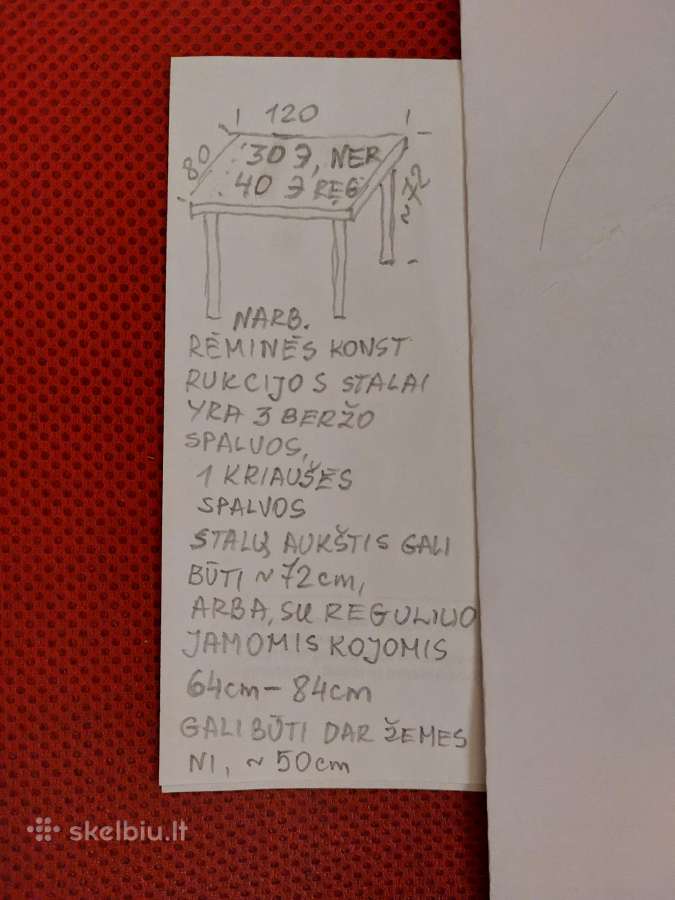 120
80
30 Э, NER
40 Э REG
72
NARB.
RĖMINĖS KONST
RUKCIJOS STALAI
YRA 3 BERŽO
SPALVOS,
1 KRIAUŠĖS
SPALVOS
STALŲ AUKŠTIS GALI
BŪTI ~72cm,
ARBA, SU REGULIUO
JAMOMIS KOJOMIS
64cm – 84cm
GALI BŪTI DAR ŽEMES
NI, ~50cm
skelbiu.lt